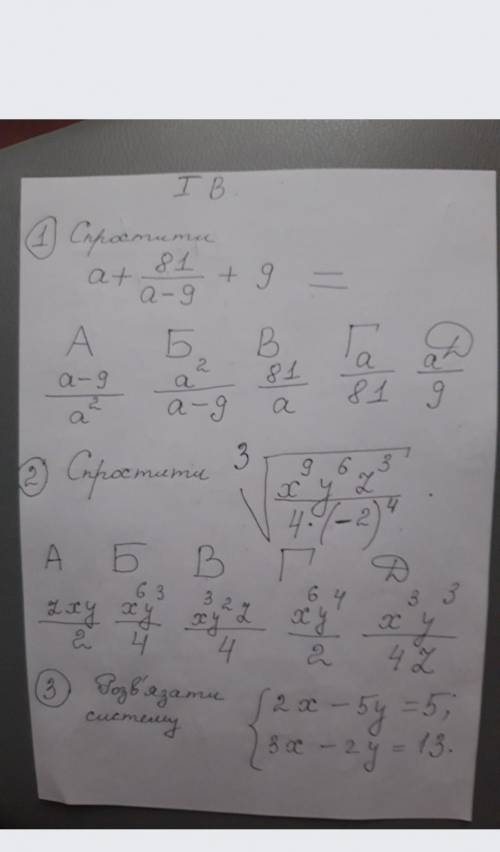 I В.
1 Спростити
a + 81/(a-9) + 9 =
А Б В Г Д
(a-9)/a² a²/(a-9) 81/a a/81 a²/9
2 Спростити ³√(x⁹y⁶z³/(4·(-2)⁴)).
А Б В Г Д
zxy/2 x⁶y³/4 x³y²z/4 x⁶y⁴/2 x³y³/4z
3 Розв'язати систему { 2x - 5y = 5; 3x - 2y = 13.